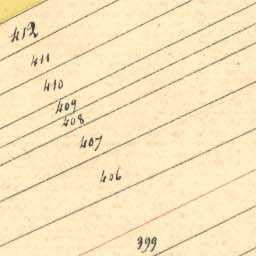 412
411
410
409
408
407
406
399